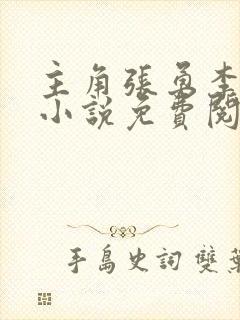 主角張勇李
小說免費閱
手島史詞 雙葉